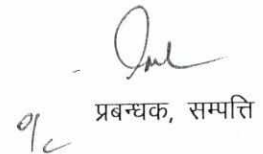 प्रबन्धक, सम्पत्ति